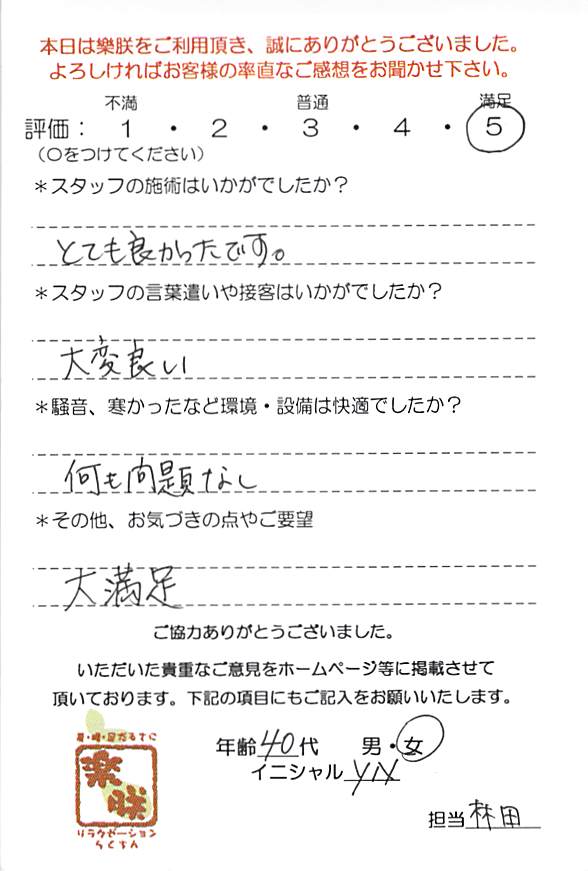 本日は樂朕をご利用頂き、誠にありがとうございました。
よろしければお客様の率直なご感想をお聞かせ下さい。
不満 普通 満足
評価： 1 ・ 2 ・ 3 ・ 4 ・ 5
（○をつけてください）
＊スタッフの施術はいかがでしたか？
とても良かったです。
＊スタッフの言葉遣いや接客はいかがでしたか？
大変良い
＊騒音、寒かったなど環境・設備は快適でしたか？
何も問題なし
＊その他、お気づきの点やご要望
大満足
ご協力ありがとうございました。
いただいた貴重なご意見をホームページ等に掲載させて
頂いております。下記の項目にもご記入をお願いいたします。
肩・腰・足だるまに
樂朕
リラクゼーション
らくちん
年齢40代 男・女
イニシャル
担当 林田